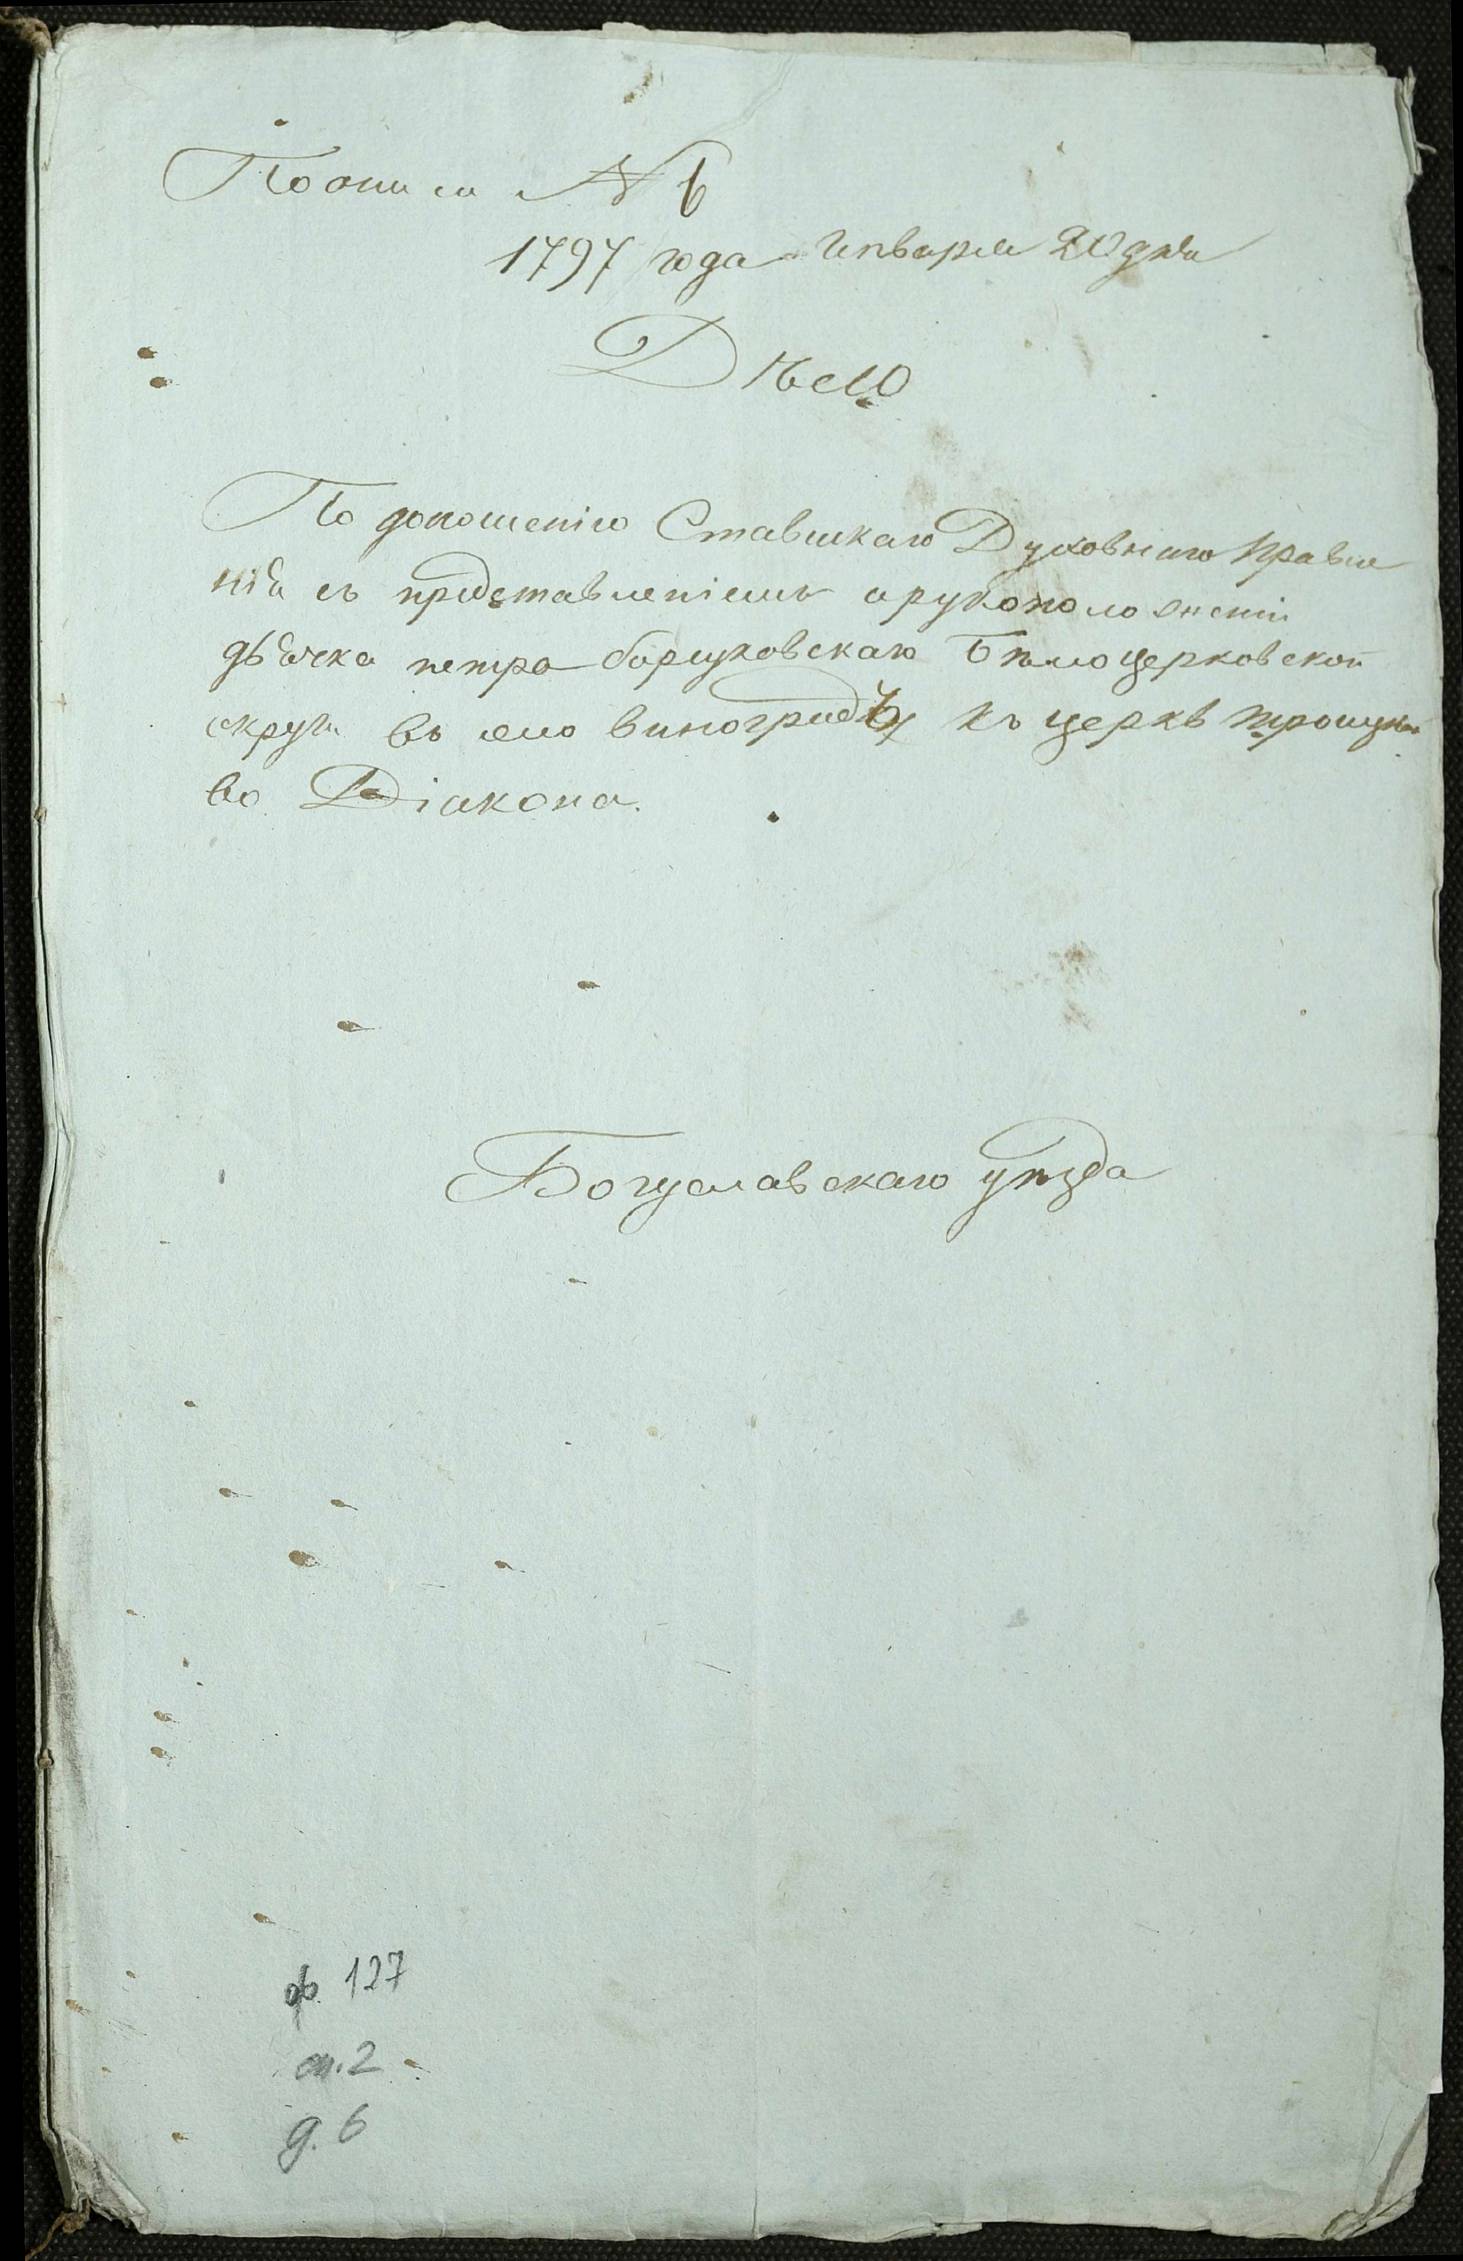 По описи № 6
1797 года Генваря 20 дня
Дѣло
По доношенію Ставискаго Духовнаго Правле
нія съ представленіемъ о рукоположеніи
дьячка петра борщковскаго Бѣлоцерковской
округи въ село виноградъ къ церкве троицкой
во Діакона.
Богуславскаго уѣзда
ф. 127
оп. 2
д. 6